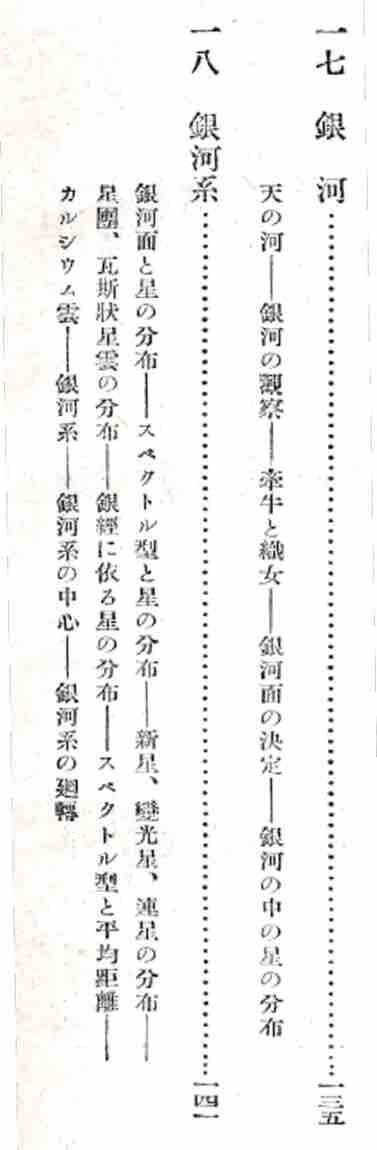 一七 銀河……………………………………一三五
天の河――銀河の觀察――牽牛と織女――銀河面の決定――銀河の中の星の分布
一八 銀河系……………………………………一四一
銀河面と星の分布――スペクトル型と星の分布――新星、變光星、連星の分布――
星團、瓦斯狀星雲の分布――銀經に依る星の分布――スペクトル型と平均距離――
カルシウム雲――銀河系――銀河系の中心――銀河系の廻轉